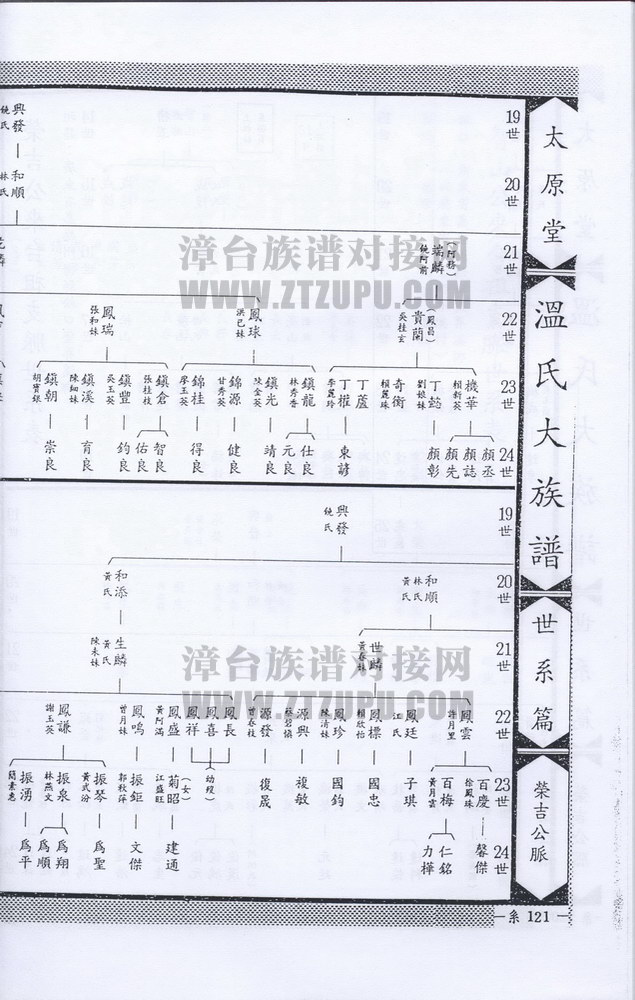 太原堂
溫氏大族譜
世系篇
榮吉公脈
19世
20世
21世
22世
23世
24世
興發
饒氏
和順
林氏
端麟
饒阿前
貴蘭
(鳳昌)
吳桂玄
機華
賴新英
丁懿
劉娘妹
奇衡
賴麗珠
丁蘆
丁權
李麗玲
顏丞
顏誌
顏先
顏彰
東諺
鳳球
洪已妹
鎮龍
林秀香
鎮光
陳金英
錦源
甘秀英
錦桂
廖玉英
仕良
元良
靖良
健良
得良
鳳瑞
張和妹
鎮倉
張桂枝
鎮豐
吳玉英
鎮溪
陳細妹
鎮朝
胡寶銀
智良
佑良
鈞良
育良
崇良
19世
20世
21世
22世
23世
24世
興發
饒氏
和順
林氏
黃氏
世麟
黃春妹
鳳雲
許月里
鳳廷
江氏
鳳標
賴欣怡
鳳珍
陳清妹
源興
蔡碧慎
源發
曾春枝
百慶
徐鳳珠
百梅
黃月雲
子琪
國忠
國鈞
複敏
復晟
馨傑
仁銘
力樺
和添
黃氏
生麟
黃氏
陳未妹
鳳長
鳳喜
鳳祥
(幼歿)
鳳盛
黃阿滿
鳳鳴
曾月妹
鳳謙
謝玉英
菊昭
(女)
江盛旺
振鉅
郭秋萍
振琴
黃貳汾
振泉
林燕文
振湧
簡素惠
建通
文傑
爲聖
爲翔
爲順
爲平
系 121
漳台族谱对接网
WWW.ZTZUPU.COM
漳台族谱对接网
WWW.ZTZUPU.COM